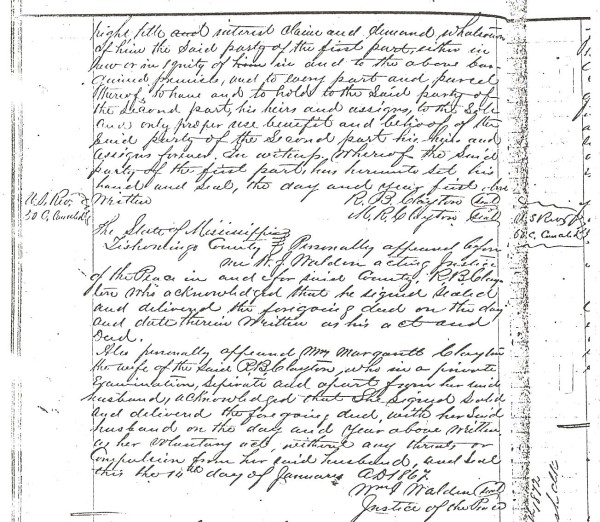 right title and interest claim and demand whatsoever
of him the said party of the first part, either in
law or in Equity of him in and to the above bar
gained premices, and to every part and parcel
thereof, to have and to hold to the said party of
the second part, his heirs and assigns, to the Sole
and only proper use benefit and behoof of the
said party of the Second part his heirs and
assigns forever. In witness, Whereof the said
party of the first part, has hereunto set his
hand and seal, the day and year first above
Written R. B. Clayton Seal
M. R. Clayton, Seal
U.S. Rev
50 C. Canceled
The State of Mississippi
Tishomingo County Personally appeared before
me W. J. Walden acting Justice
of the Peace in and for said County, R. B. Clay
ton who acknowledged that he signed sealed
and delivered the foregoing deed on the day
and date therein Written as his act and
Deed.
Also personally appeared Mrs Margarett Clayton
the wife of the said R. B. Clayton, who in a private
Examination, Seperate and apart from her said
husband, acknowledged that She Signed Seald
and delivered the foregoing deed, with her Said
husband on the day and year above Written
as her voluntary act, without any threats or
Compulsion from her said husband, and seal
this the 14th day of January AD 1867.
Wm J Walden Seal
Justice of the Peace
U S Rev
50 C. Canceled